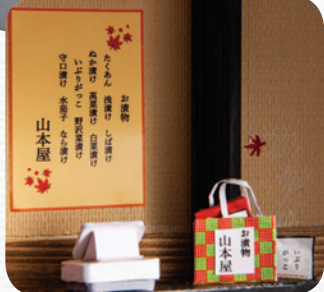 お漬物
たくあん 浅漬け しば漬け
ぬか漬け 高菜漬け 白菜漬け
いぶりがっこ 野沢菜漬け
守口漬け 水茄子 なら漬け
山本屋
お漬物
山本屋
いぶり
がっこ